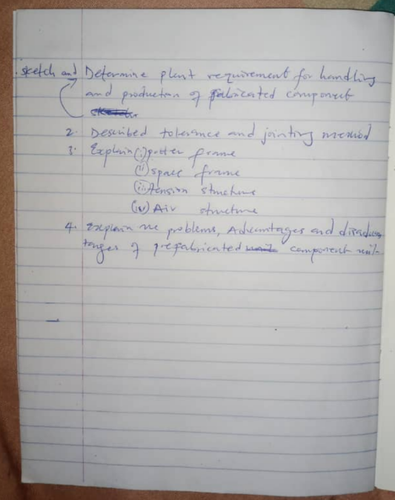 sketch and Determine plant requirement for handling
and production of fabricated component
2. Described tolerance and jointing method
3. Explain (i) portter frame
(ii) space frame
(iii) tension structure
(iv) Air structure
4. Explain the problems, Advantages and disadvan
tages of prefabricated component